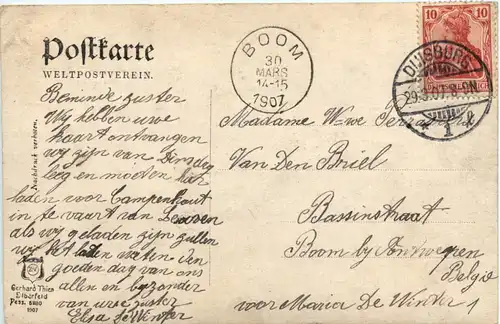 Postkarte
WELTPOSTVEREIN.
BOOM
30
MARS
14-15
1907
10
DUISBURG
29.3.07.
* 1
Nachdruck verboten.
Beminde zuster
Wy hebben uwe
kaart ontvangen
wy zijn van Densdag
leeg en moeten hier
laden voor Campenhout
in te vaart van Leuven
als wy geladen zijn zullen
wy het laten weten den
goeden dag van ons
allen en byzonder
van uwe zuster
Elsa De Winter
Madame W=we
Van Den Briel
Bassinstraat
Boom by Antwerpen
Belgie
voor Maria De Winter
Gerhard Thien
Elberfeld
1907